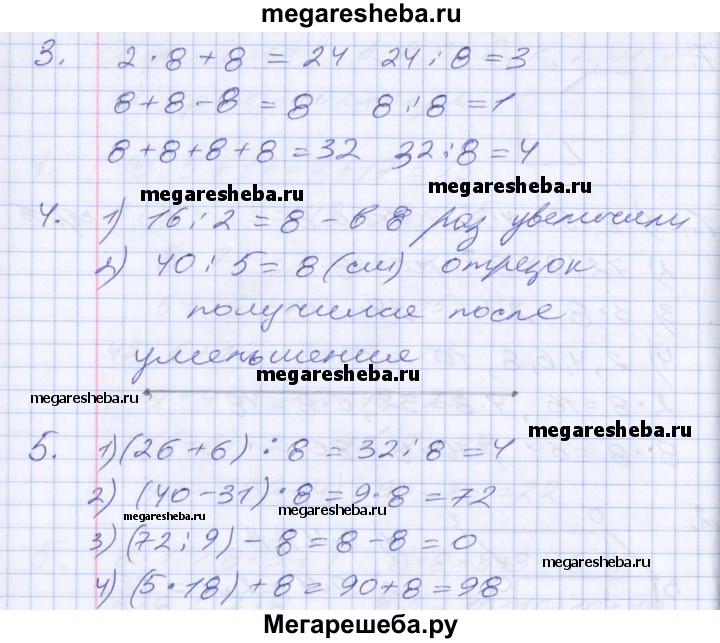 megaresheba.ru
3. 2 · 8 + 8 = 24 24 : 8 = 3
8 + 8 - 8 = 8 8 : 8 = 1
8 + 8 + 8 + 8 = 32 32 : 8 = 4
megaresheba.ru megaresheba.ru
4. 1) 16 : 2 = 8 - в 8 раз увеличили
2) 40 : 5 = 8 (см) отрезок
получился после
уменьшения
megaresheba.ru
megaresheba.ru
megaresheba.ru
5. 1) (26 + 6) : 8 = 32 : 8 = 4
2) (40 - 31) · 8 = 9 · 8 = 72
megaresheba.ru megaresheba.ru
3) (72 : 9) - 8 = 8 - 8 = 0
megaresheba.ru
4) (5 · 18) + 8 = 90 + 8 = 98
Мегарешеба.ру